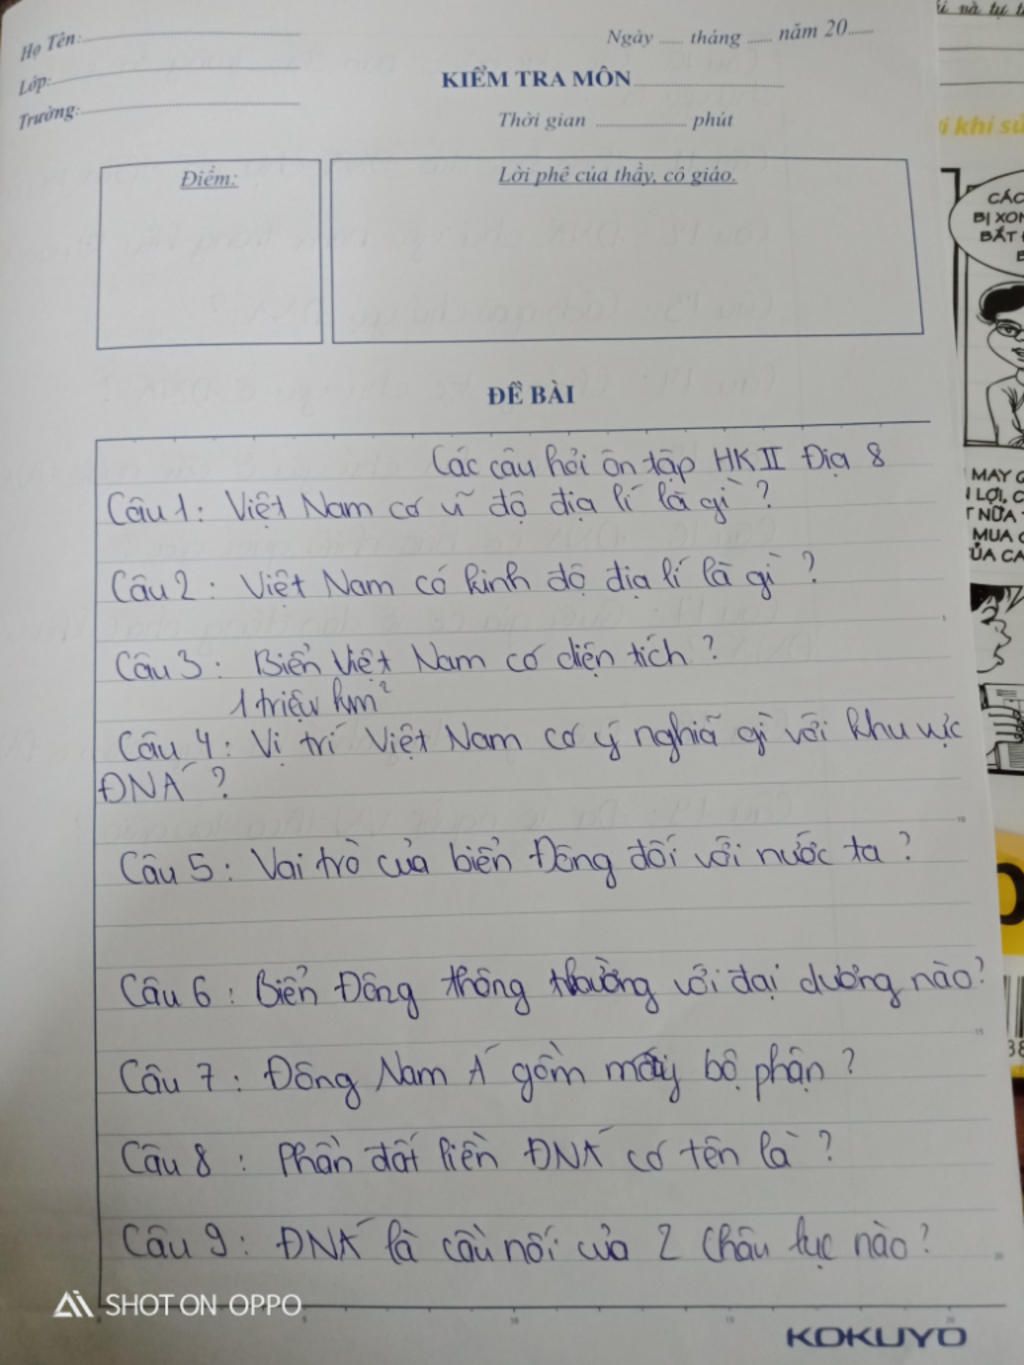 Họ Tên:
Ngày ..... tháng ..... năm 20.....
Lớp:
KIỂM TRA MÔN
Trường:
Thời gian ............ phút
Điểm:
Lời phê của thầy, cô giáo.
ĐỀ BÀI
Các câu hỏi ôn tập HKII Địa 8
Câu 1: Việt Nam có vĩ độ địa lí là gì ?
Câu 2 : Việt Nam có kinh độ địa lí là gì ?
Câu 3 : Biển Việt Nam có diện tích ?
1 triệu km²
Câu 4 : Vị trí Việt Nam có ý nghĩa gì với khu vực
ĐNÁ ?
Câu 5 : Vai trò của biển Đông đối với nước ta ?
Câu 6 : Biển Đông thông thường với đại dương nào?
Câu 7 : Đông Nam Á gồm mấy bộ phận ?
Câu 8 : Phần đất liền ĐNÁ có tên là ?
Câu 9 : ĐNÁ là cầu nối của 2 Châu lục nào ?
SHOT ON OPPO
KOKUYO
khi
CÁC
BỊ XON
BẮT
MAY
LỢI, C
NỮA
MUA
ỦA CA